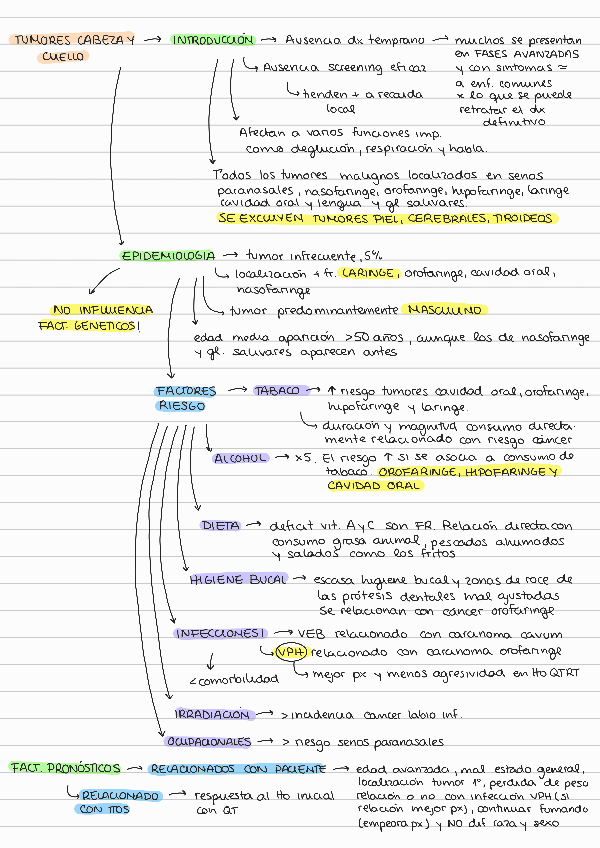 TUMORES CABEZA Y CUELLO → INTRODUCCIÓN → Ausencia dx temprano → muchos se presentan
en FASES AVANZADAS
y con síntomas ≈
a enf. comunes
x lo que se puede
retratar el dx
definitivo
↳ Ausencia screening eficaz
↳ tienden + a recaída
local
Afectan a varios funciones imp.
como deglución, respiración y habla.
Todos los tumores malignos localizados en senos
paranasales, nasofaringe, orofaringe, hipofaringe, laringe
cavidad oral y lengua y gl salivares.
SE EXCLUYEN TUMORES PIEL, CEREBRALES, TIROIDEOS
EPIDEMIOLOGIA → tumor infrecuente, 5%
↳ localización + fr. LARINGE, orofaringe, cavidad oral,
nasofaringe
↳ tumor predominantemente MASCULINO
NO INFLUENCIA
FACT. GENETICOS!
edad media aparición >50 años, aunque los de nasofaringe
y gl. salivares aparecen antes
FACTORES
RIESGO → TABACO → ↑ riesgo tumores cavidad oral, orofaringe,
hipofaringe y laringe.
↳ duración y magnitud consumo directa-
mente relacionado con riesgo cáncer
ALCOHOL → x5. El riesgo ↑ si se asocia a consumo de
tabaco. OROFARINGE, HIPOFARINGE Y
CAVIDAD ORAL
DIETA → deficit vit. A y C son FR. Relación directa con
consumo grasa animal, pescados ahumados
y salados como los fritos
HIGIENE BUCAL → escasa higiene bucal y zonas de roce de
las prótesis dentales mal ajustadas
se relacionan con cáncer orofaringe
INFECCIONES! → VEB relacionado con carcinoma cavum
↳ VPH relacionado con carcinoma orofaringe
↳ mejor px y menos agresividad en tto QTRT
<comorbilidad
IRRADIACIÓN → >incidencia cáncer labio inf.
OCUPACIONALES → > riesgo senos paranasales
FACT. PRONÓSTICOS → RELACIONADOS CON PACIENTE → edad avanzada, mal estado general,
localización tumor 1º, perdida de peso
relación o no con infección VPH (si
relación mejor px), continuar fumando
(empeora px) y NO dif raza y sexo
↳ RELACIONADO
CON TTOS → respuesta al tto inicial
con QT